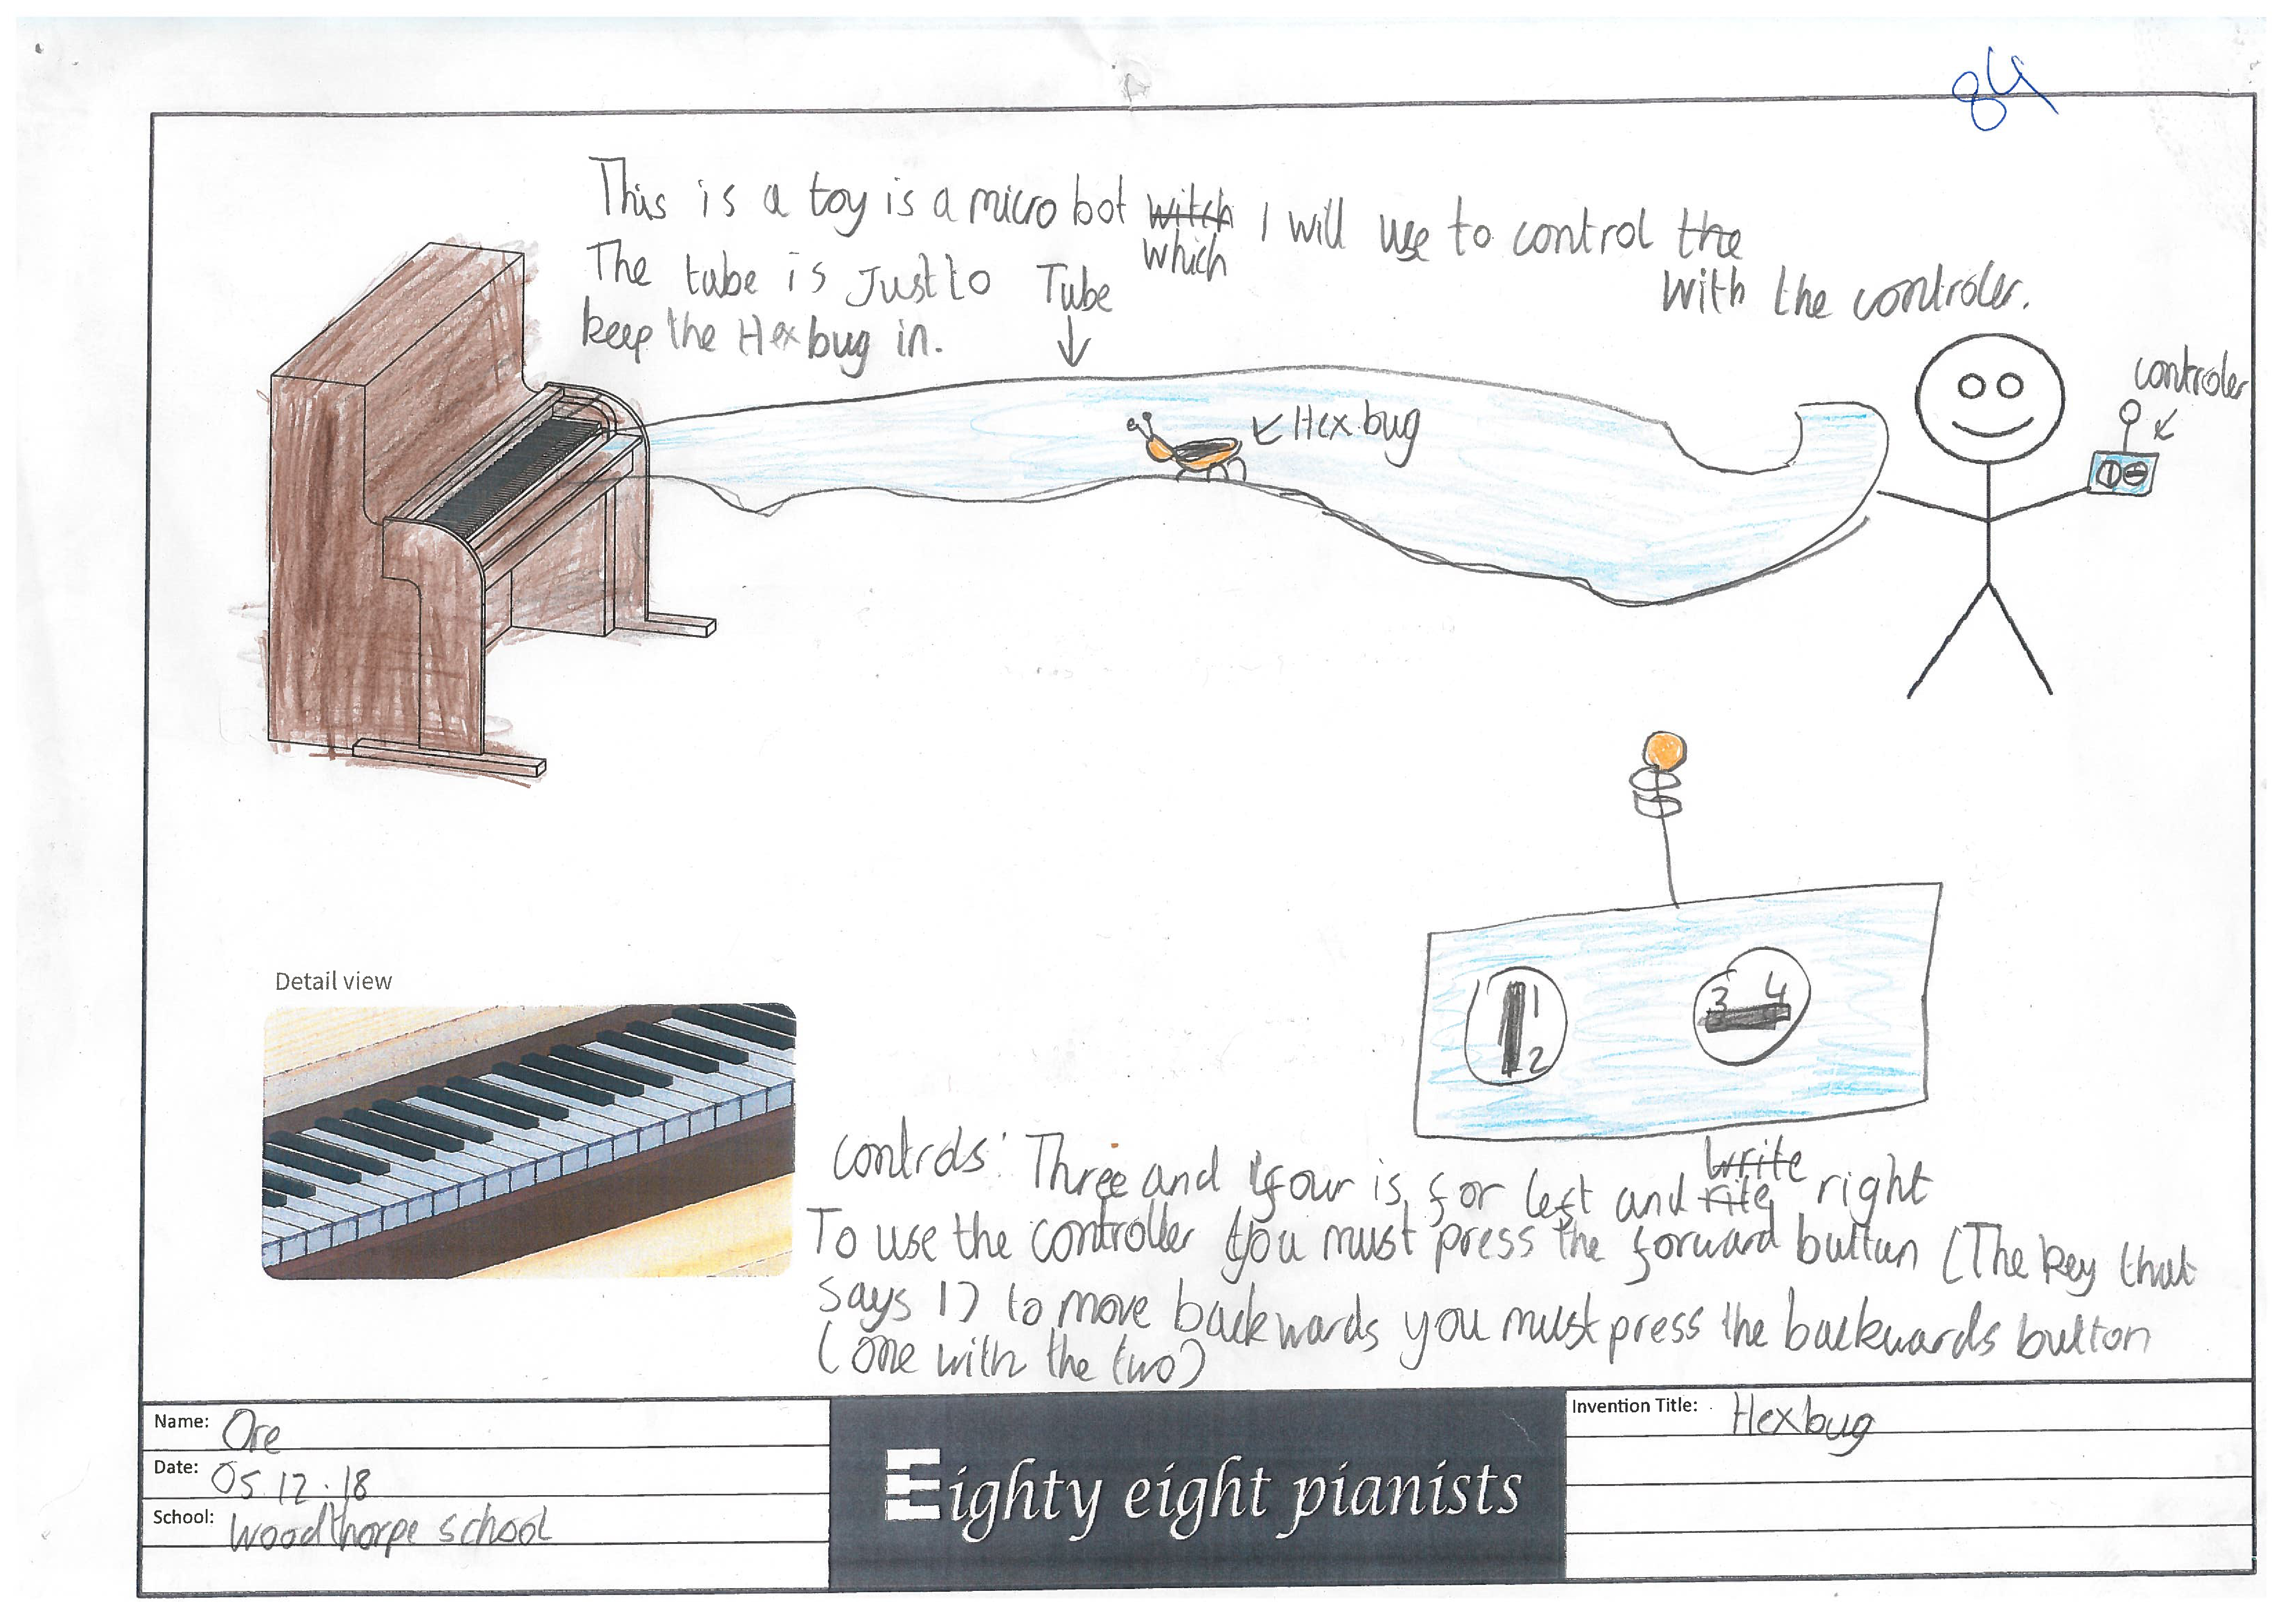 84
This is a toy is a micro bot witch I will use to control the
which
with the controler.
The tube is Just to
keep the Hexbug in.
Tube
Hexbug
controler
1
2
3 4
Detail view
controls: Three and four is for left and rite write right
To use the controller you must press the forward button (The key that
says 1) to move backwards you must press the backwards button
(one with the two)
Name: Ore
Date: 05.12.18
School: Woodthorpe school
Eighty eight pianists
Invention Title: Hexbug